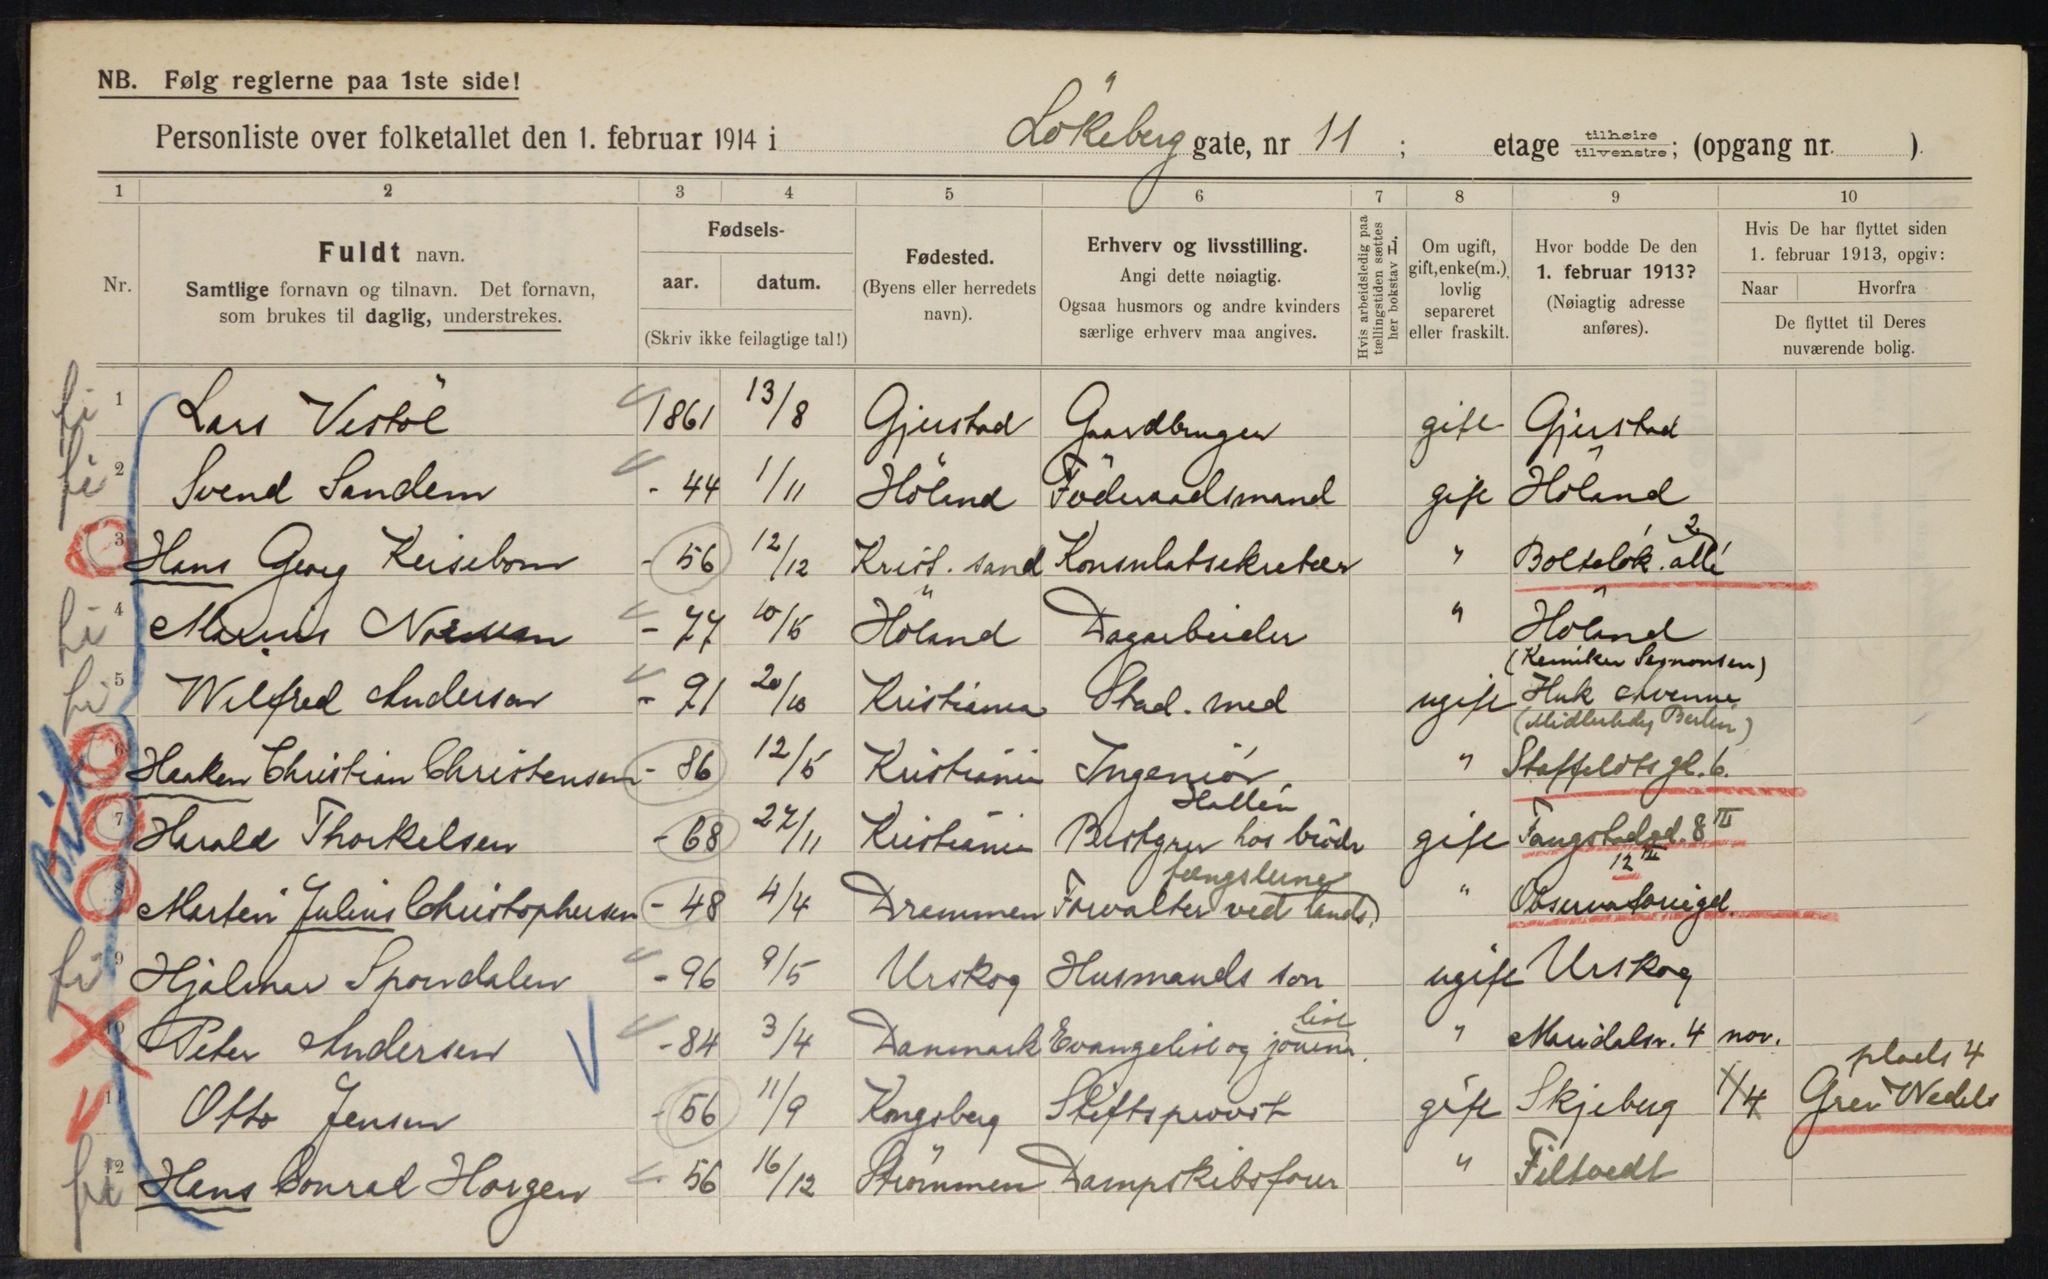 NB. Følg reglerne paa 1ste side!
Personliste over folketallet den 1. februar 1914 i Lökeberg gate, nr 11 ; etage tilhøire tilvenstre; (opgang nr. ).
1 2 3 4 5 6 7 8 9 10
Nr.
Fuldt navn.
Samtlige fornavn og tilnavn. Det fornavn,
som brukes til daglig, understrekes.
Fødsels-
aar. datum.
(Skriv ikke feilagtige tal!)
Fødested.
(Byens eller herredets
navn).
Erhverv og livsstilling.
Angi dette nøiagtig.
Ogsaa husmors og andre kvinders
særlige erhverv maa angives.
Hvis arbeidsledig paa
tællingstiden sættes
her bokstav L.
Om ugift,
gift, enke(m.),
lovlig
separeret
eller fraskilt.
Hvor bodde De den
1. februar 1913?
(Nøiagtig adresse
anføres).
Hvis De har flyttet siden
1. februar 1913, opgiv:
Naar Hvorfra
De flyttet til Deres
nuværende bolig.
fi 1 Lars Vestöl 1861 13/8 Gjerstad Gaardbruger gift Gjerstad
fi 2 Svend Sandem - 44 1/11 Höland Föderaadsmand gift Höland
3 Hans Georg Keisebom - 56 12/12 Krist.sand Konsulatsekretær " Boltelök. allé 2
fi 4 Marius - 77 10/5 Höland Dagarbeider " Höland
fi 5 Wilfred Anderson - 91 20/10 Kristiania Stud. med ugift Huk Avenue
6 Haaken Christian Christensen - 86 12/5 Kristiania Ingeniör " Staffeldts gt. 6.
7 Harald Thorkelsen - 68 27/11 Kristiania Bestyrer hos brödr Hallén gift Tangstadgd. 8 III
8 Martin Julius Christophersen - 48 4/4 Drammen Forvalter ved landsfængslerne " Observatoriegd. 12 III
fi 9 Hjalmar Spondalen - 96 9/5 Urskog Husmands søn ugift Urskog
10 Peter Andersen - 84 3/4 Danmark Evangelist og journalist " Maridalsv. 4 nov.
11 Otto Jensen - 56 11/9 Kongsberg Stiftsprovst gift Skjeberg 1/4 Grev Wedels plads 4
fri 12 Hans Conrad Horgen - 56 16/12 Strömmen Dampskibsförer " Filtvedt